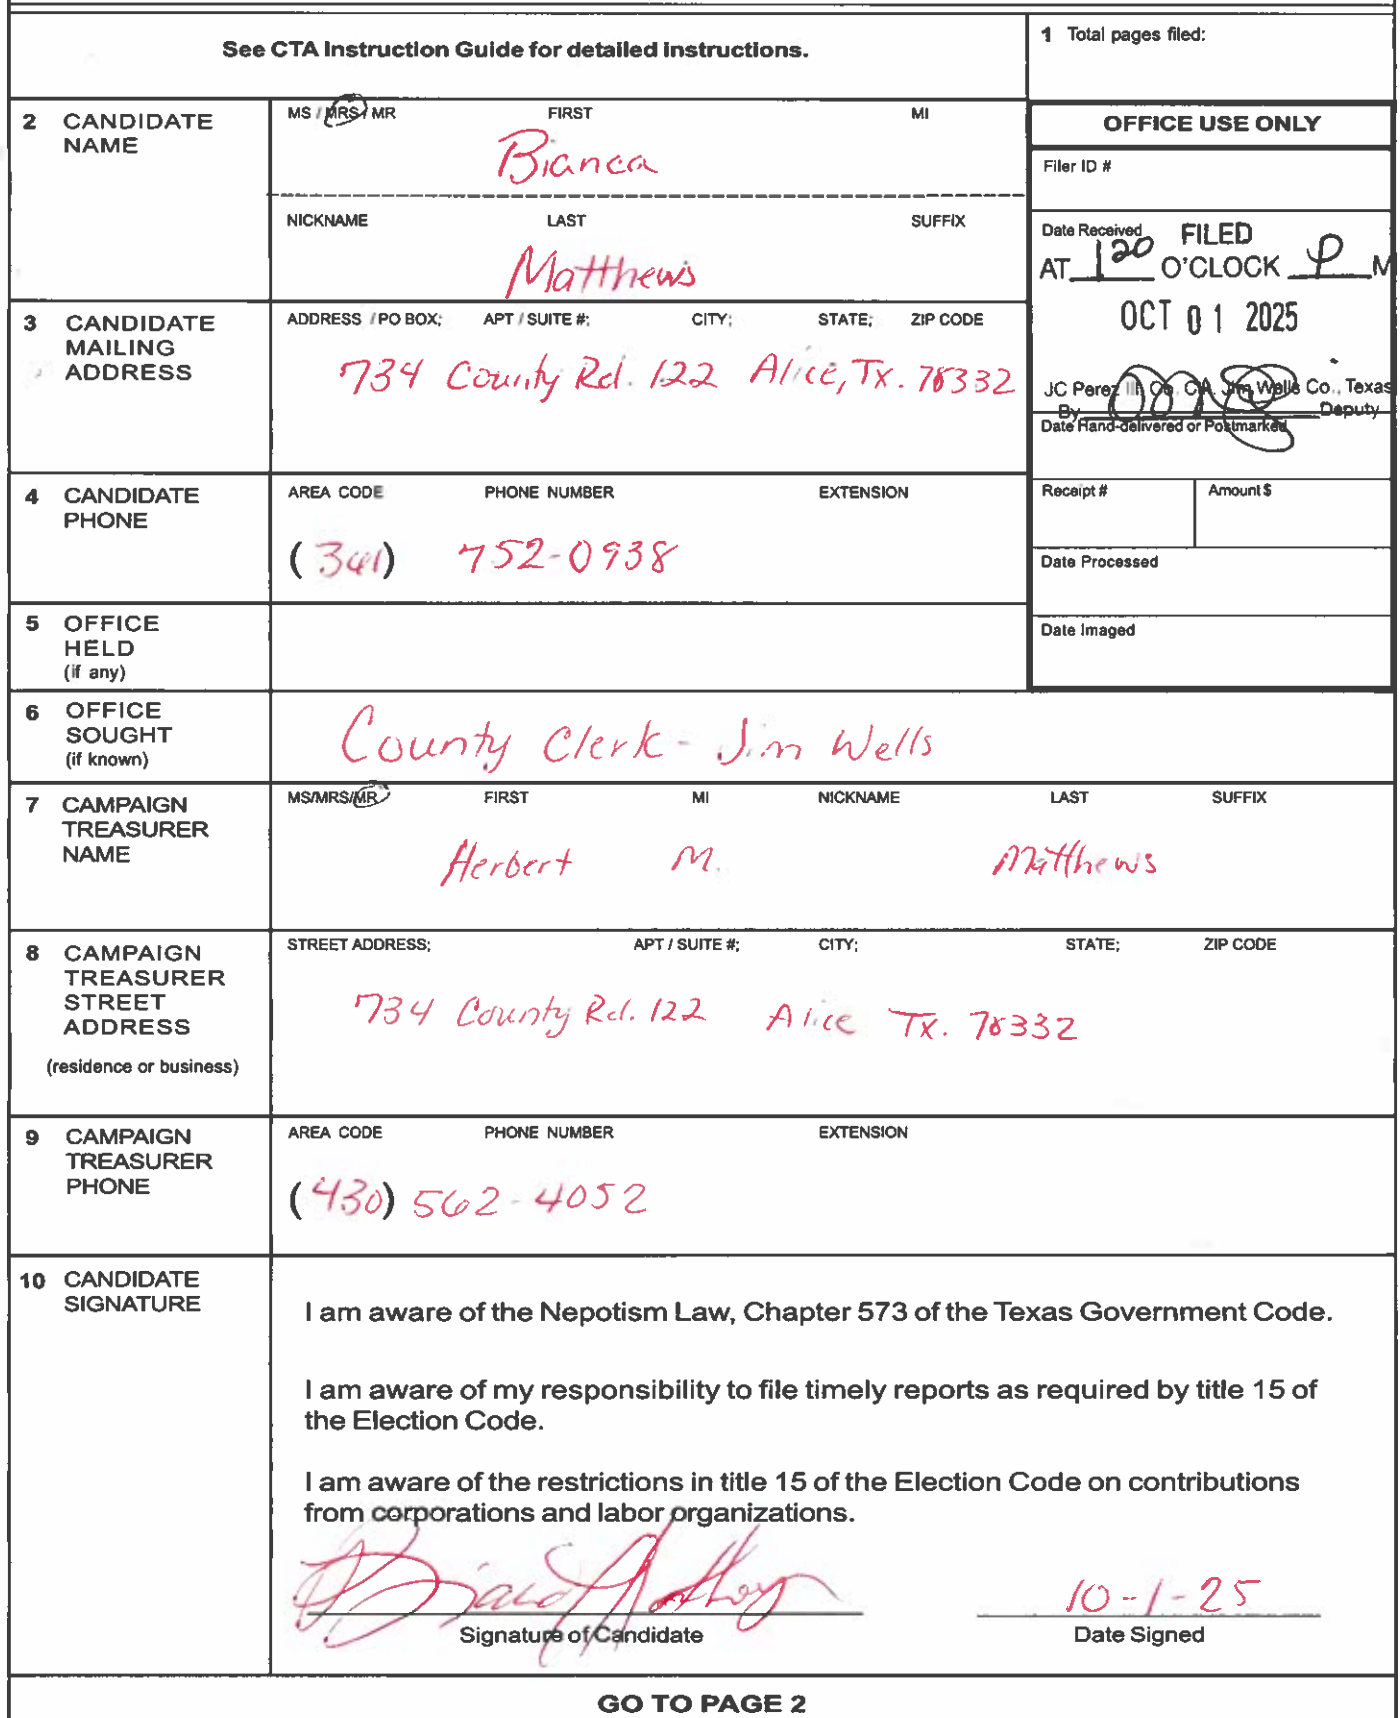 See CTA Instruction Guide for detailed instructions.
1 Total pages filed:
2 CANDIDATE NAME
MS / MRS / MR FIRST MI
Bianca
NICKNAME LAST SUFFIX
Matthews
OFFICE USE ONLY
Filer ID #
Date Received
FILED
AT 1 20 O'CLOCK P M
OCT 01 2025
JC Perez III, Co. Clk. Jim Wells Co., Texas
By Deputy
Date Hand-delivered or Postmarked
Receipt # Amount $
Date Processed
Date Imaged
3 CANDIDATE MAILING ADDRESS
ADDRESS / PO BOX; APT / SUITE #; CITY; STATE; ZIP CODE
734 County Rd. 122 Alice, Tx. 78332
4 CANDIDATE PHONE
AREA CODE PHONE NUMBER EXTENSION
(361) 752-0938
5 OFFICE HELD
(if any)
6 OFFICE SOUGHT
(if known)
County Clerk - Jim Wells
7 CAMPAIGN TREASURER NAME
MS/MRS/MR FIRST MI NICKNAME LAST SUFFIX
Herbert M. Matthews
8 CAMPAIGN TREASURER STREET ADDRESS
(residence or business)
STREET ADDRESS; APT / SUITE #; CITY; STATE; ZIP CODE
734 County Rd. 122 Alice Tx. 78332
9 CAMPAIGN TREASURER PHONE
AREA CODE PHONE NUMBER EXTENSION
(430) 562-4052
10 CANDIDATE SIGNATURE
I am aware of the Nepotism Law, Chapter 573 of the Texas Government Code.
I am aware of my responsibility to file timely reports as required by title 15 of
the Election Code.
I am aware of the restrictions in title 15 of the Election Code on contributions
from corporations and labor organizations.
10-1-25
Signature of Candidate Date Signed
GO TO PAGE 2